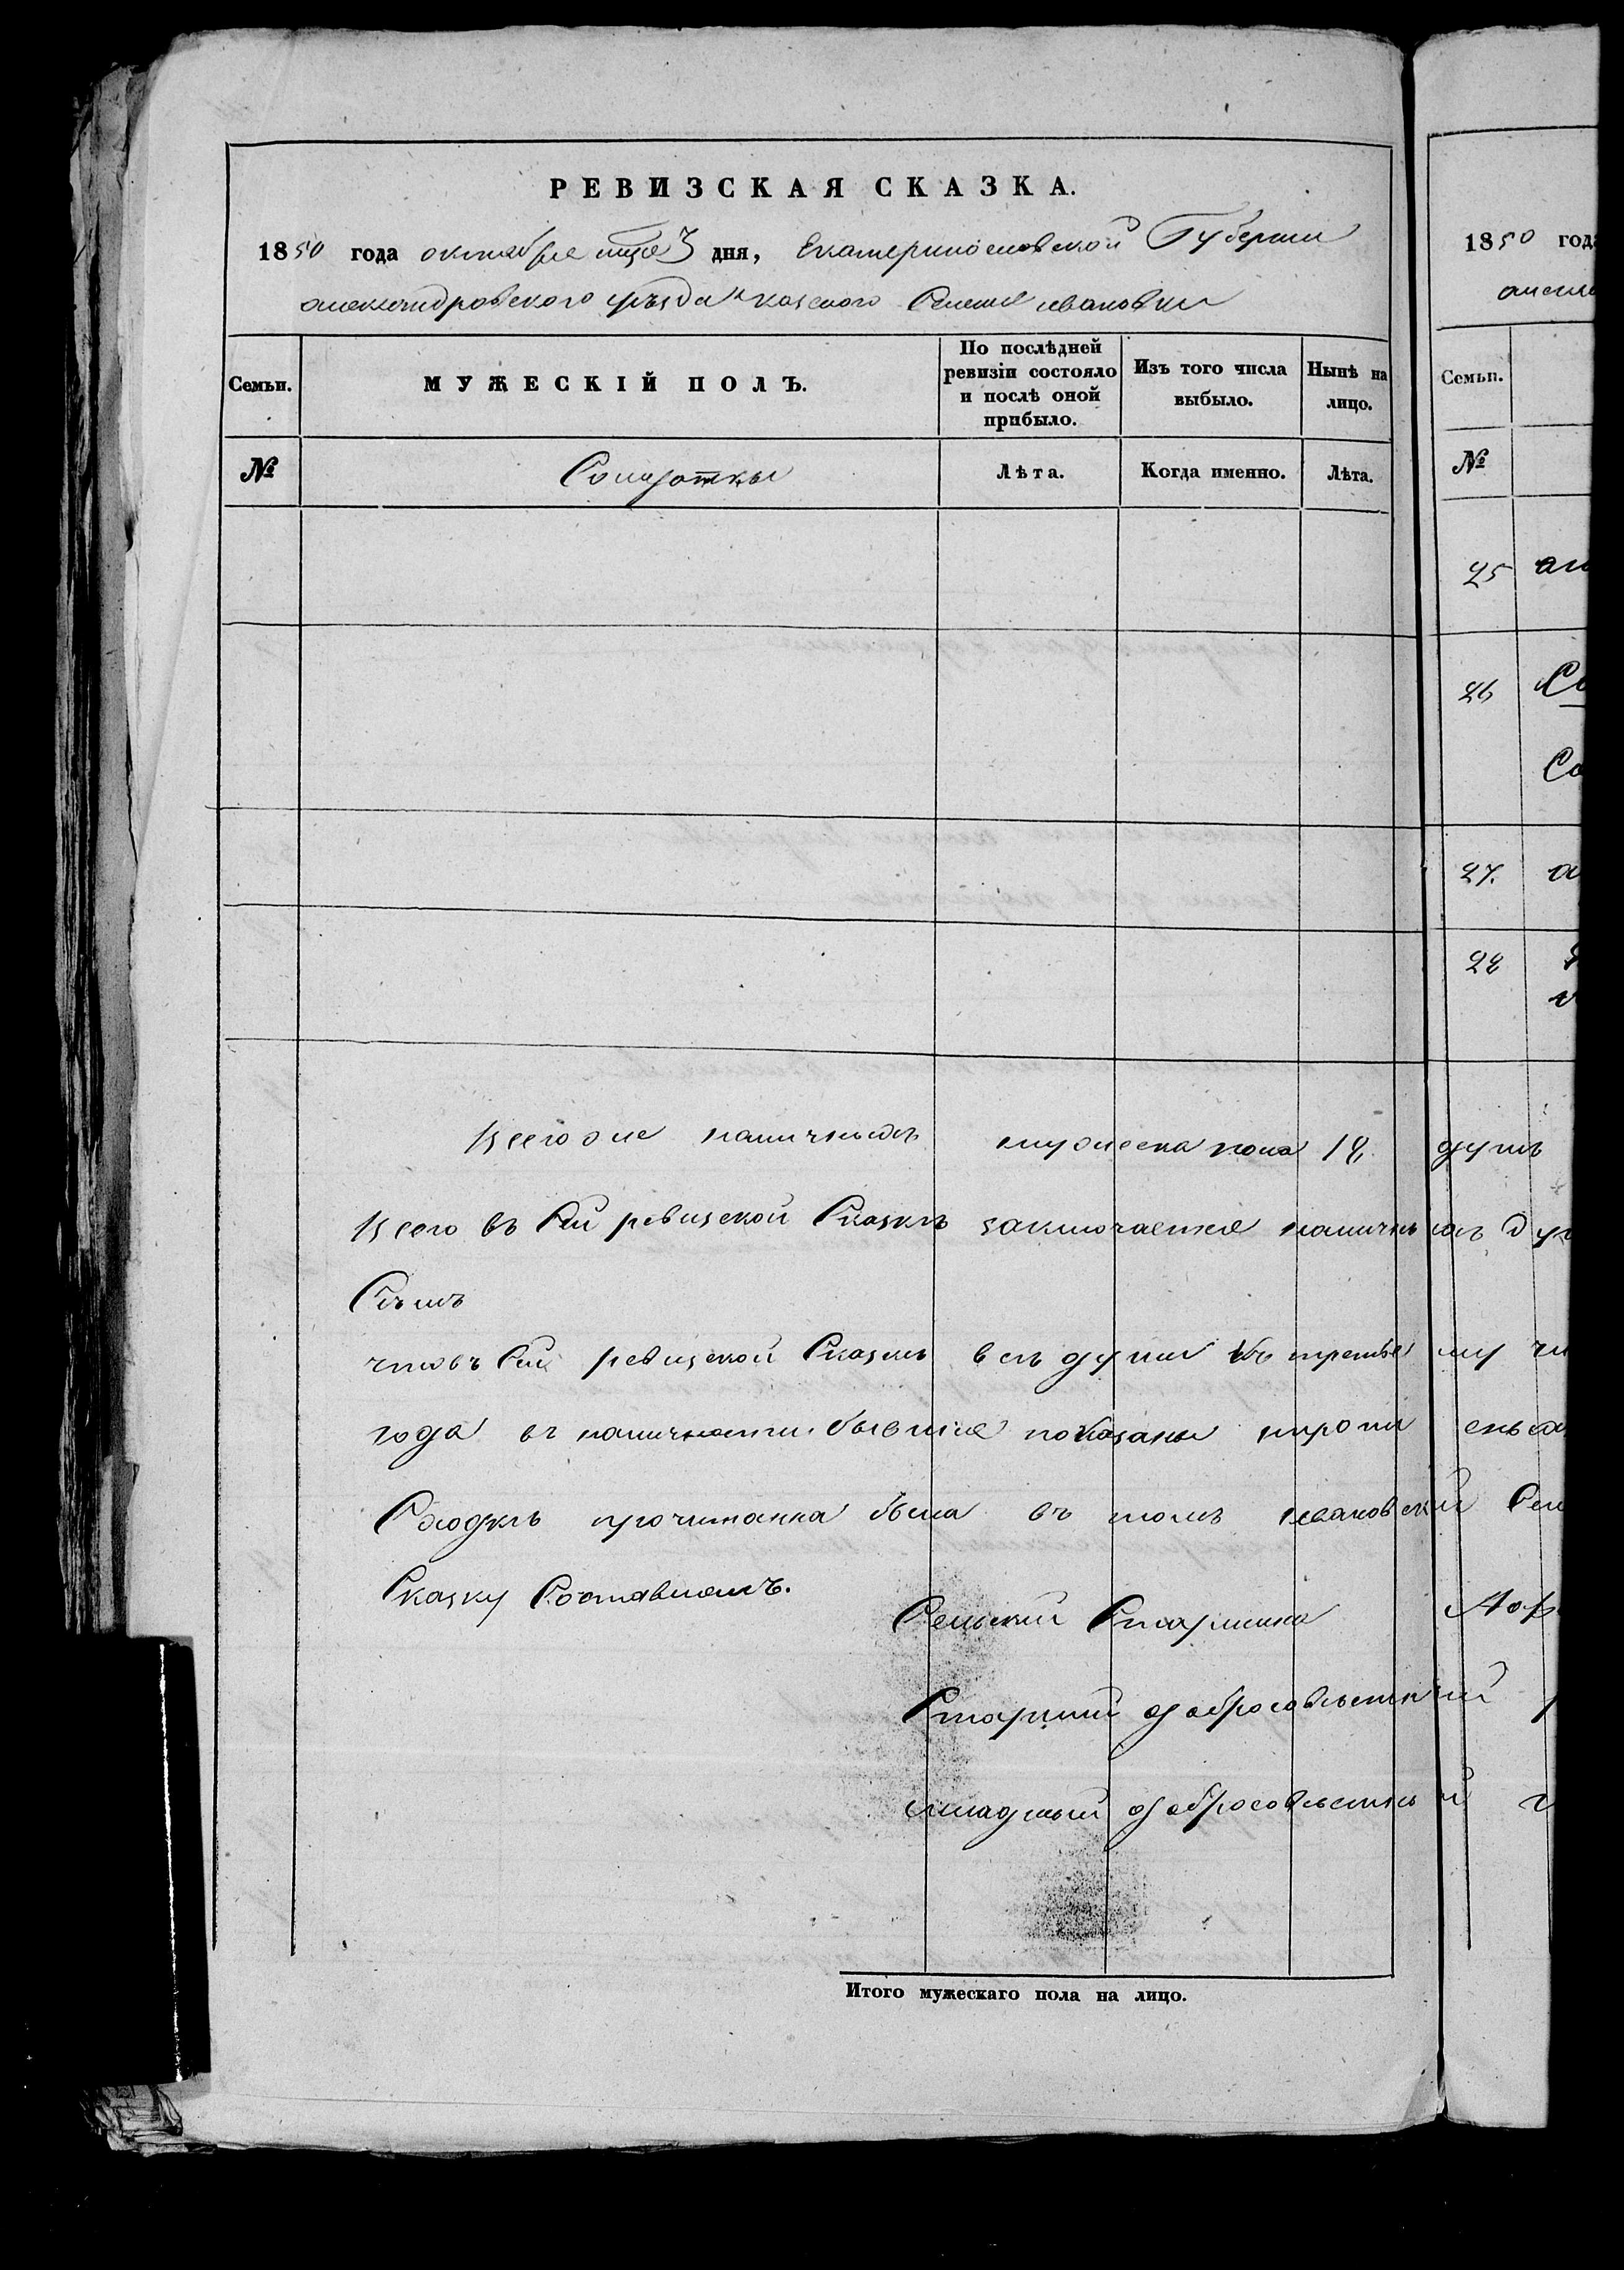 РЕВИЗСКАЯ СКАЗКА.
1850 года октября дня, Екатеринославской Губернии
александровского уѣзда казеного Селенія ивановки
Семьи.
МУЖЕСКІЙ ПОЛЪ.
По послѣдней ревизіи состояло и послѣ оной прибыло.
Изъ того числа выбыло.
Нынѣ на лицо.
№
Солдатки
Лѣта.
Когда именно.
Лѣта.
Всего же наличныхъ мужеска пола 18 душъ
Всего въ сей ревизской Сказкѣ заключается наличныхъ
чтовъ сей ревизской Сказкѣ всѣ души къ третьему
года въ наличности бывшіе показаны
Сходкѣ прочитанна была въ томъ ивановскій
Сказку Составломъ.
Сельский Старшина
Старший добросовѣстный
младшый добросовѣстный
Итого мужескаго пола на лицо.
1850 года
Семьи.
№
25
26
27.
28